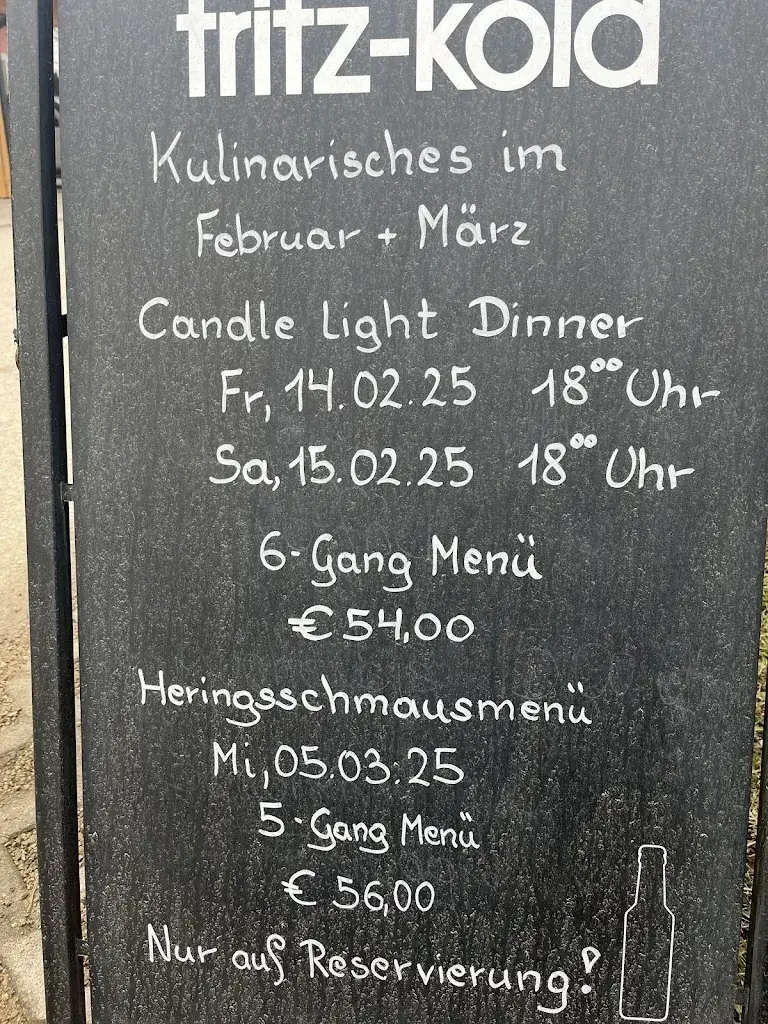 fritz-kola
Kulinarisches im
Februar + März
Candle Light Dinner
Fr, 14.02.25 18⁰⁰ Uhr
Sa, 15.02.25 18⁰⁰ Uhr
6-Gang Menü
€ 54,00
Heringsschmausmenü
Mi, 05.03.25
5-Gang Menü
€ 56,00
Nur auf Reservierung!